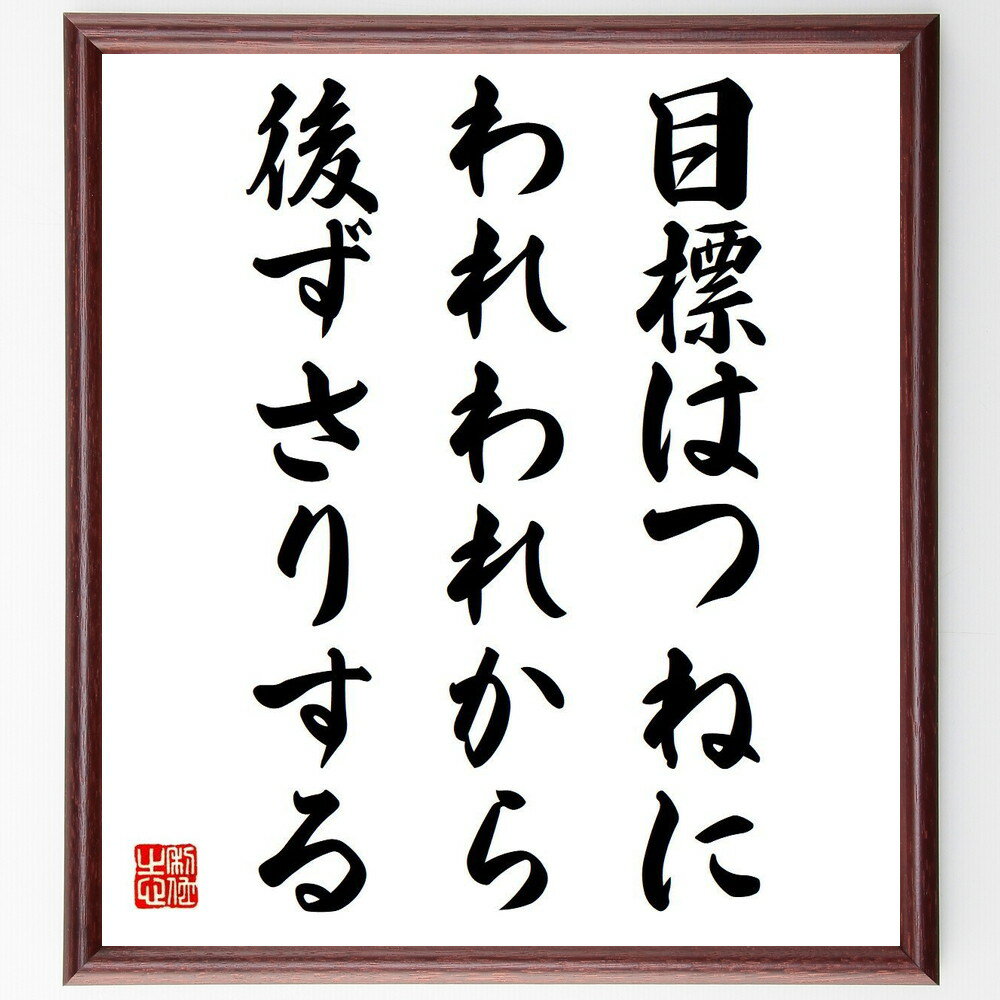 目標はつねに
われわれから
後ずさりする